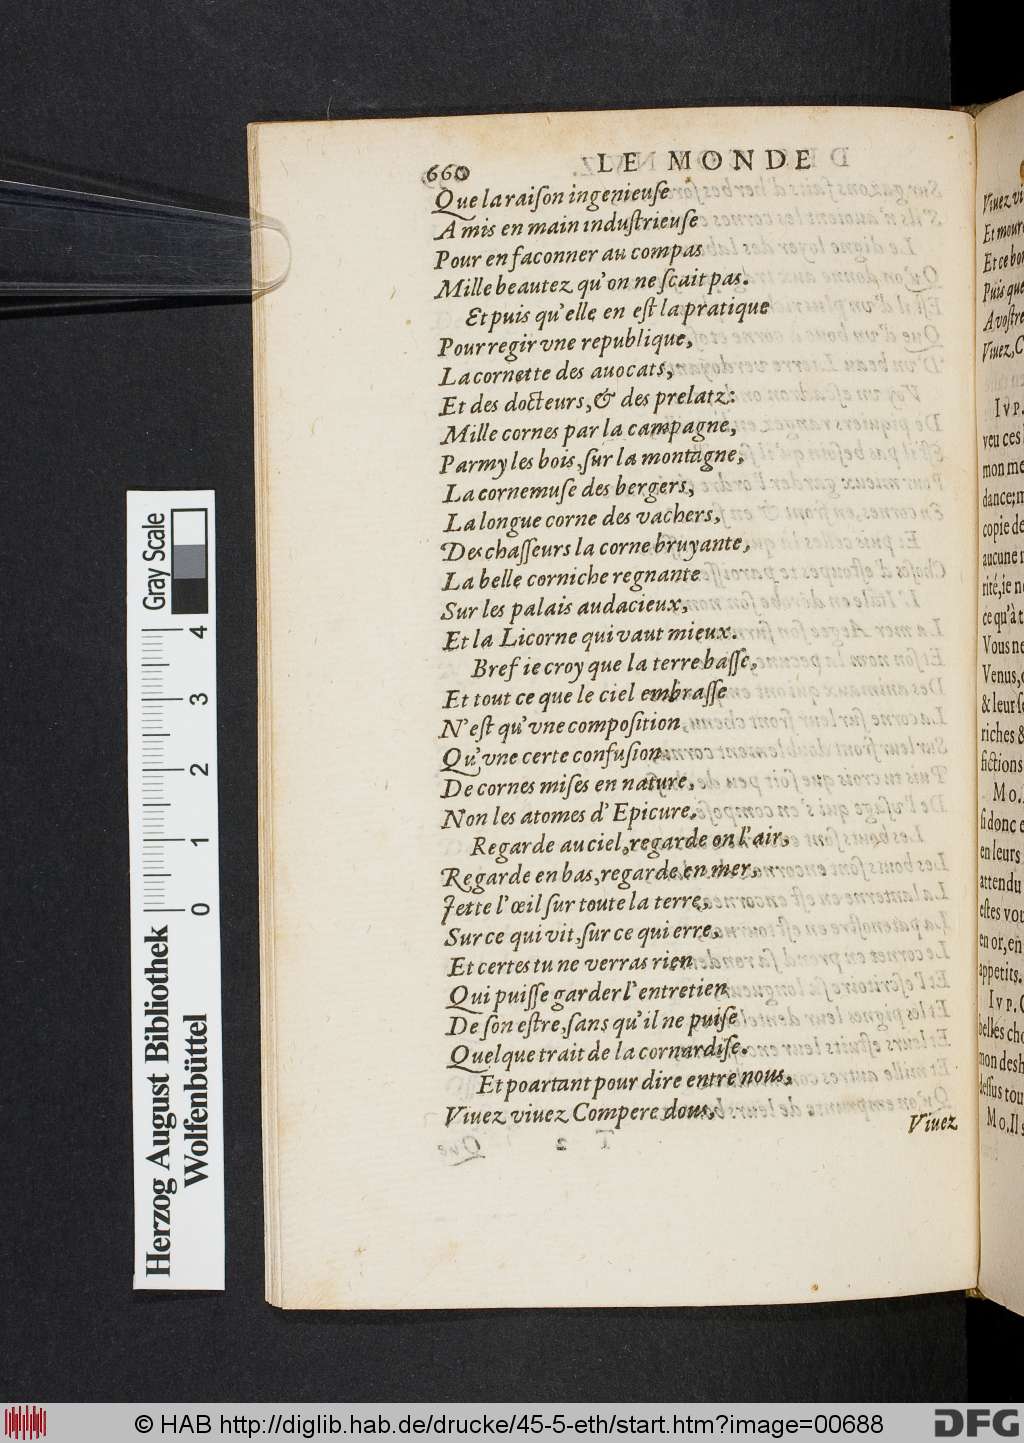 660 LE MONDE
Que la raiſon ingenieuſe
A mis en main induſtrieuſe
Pour en faconner au compas
Mille beautez qu'on ne ſcait pas.
Et puis qu'elle en eſt la pratique
Pour regir vne republique,
La cornette des auocats,
Et des docteurs, & des prelatz:
Mille cornes par la campagne,
Parmy les bois, ſur la montagne,
La cornemuſe des bergers,
La longue corne des vachers,
Des chaſſeurs la corne bruyante,
La belle corniche regnante
Sur les palais audacieux,
Et la Licorne qui vaut mieux.
Bref ie croy que la terre baſſe,
Et tout ce que le ciel embraſſe
N'eſt qu'vne compoſition,
Qu'vne certe confuſion
De cornes miſes en nature,
Non les atomes d'Epicure.
Regarde au ciel, regarde en l'air,
Regarde en bas, regarde en mer,
Jette l'œil ſur toute la terre,
Sur ce qui vit, ſur ce qui erre,
Et certes tu ne verras rien
Qui puiſſe garder l'entretien
De ſon eſtre, ſans qu'il ne puiſe
Quelque trait de la cornardiſe.
Et poartant pour dire entre nous,
Viuez viuez Compere dous,
Viuez
Viuez vi
Et mour
Et ce bo
Puis que
A voſtre
Viuez, C
IVP.
veu ces
mon me
dance; m
copie de
aucune
rité, ie n
ce qu'à t
Vous ne
Venus,
& leur ſ
riches &
fictions
Mo.
ſi donc
en leurs
attendu
eſtes vou
en or, en
appetits.
IVP.
belles cho
mon desh
deſſus tou
Mo. Il
Gray Scale
0 1 2 3 4
Herzog August Bibliothek
Wolfenbüttel
© HAB http://diglib.hab.de/drucke/45-5-eth/start.htm?image=00688
DFG